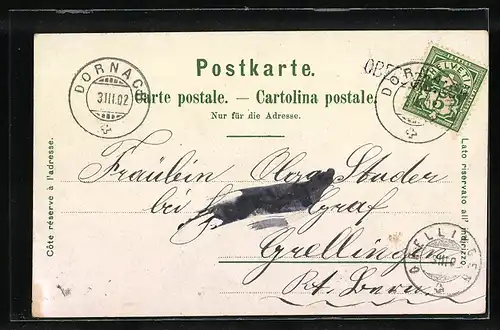 Postkarte.
Carte postale. — Cartolina postale.
Nur für die Adresse.
DORNACH
3 III.02
HELVETIA
5
DORNACH
Fräulein Olga Studer
bei Graf
Grellingen
Kt. Bern.
GRELLINGEN
Côte réservé à l'adresse.
Lato riservato all' indirizzo